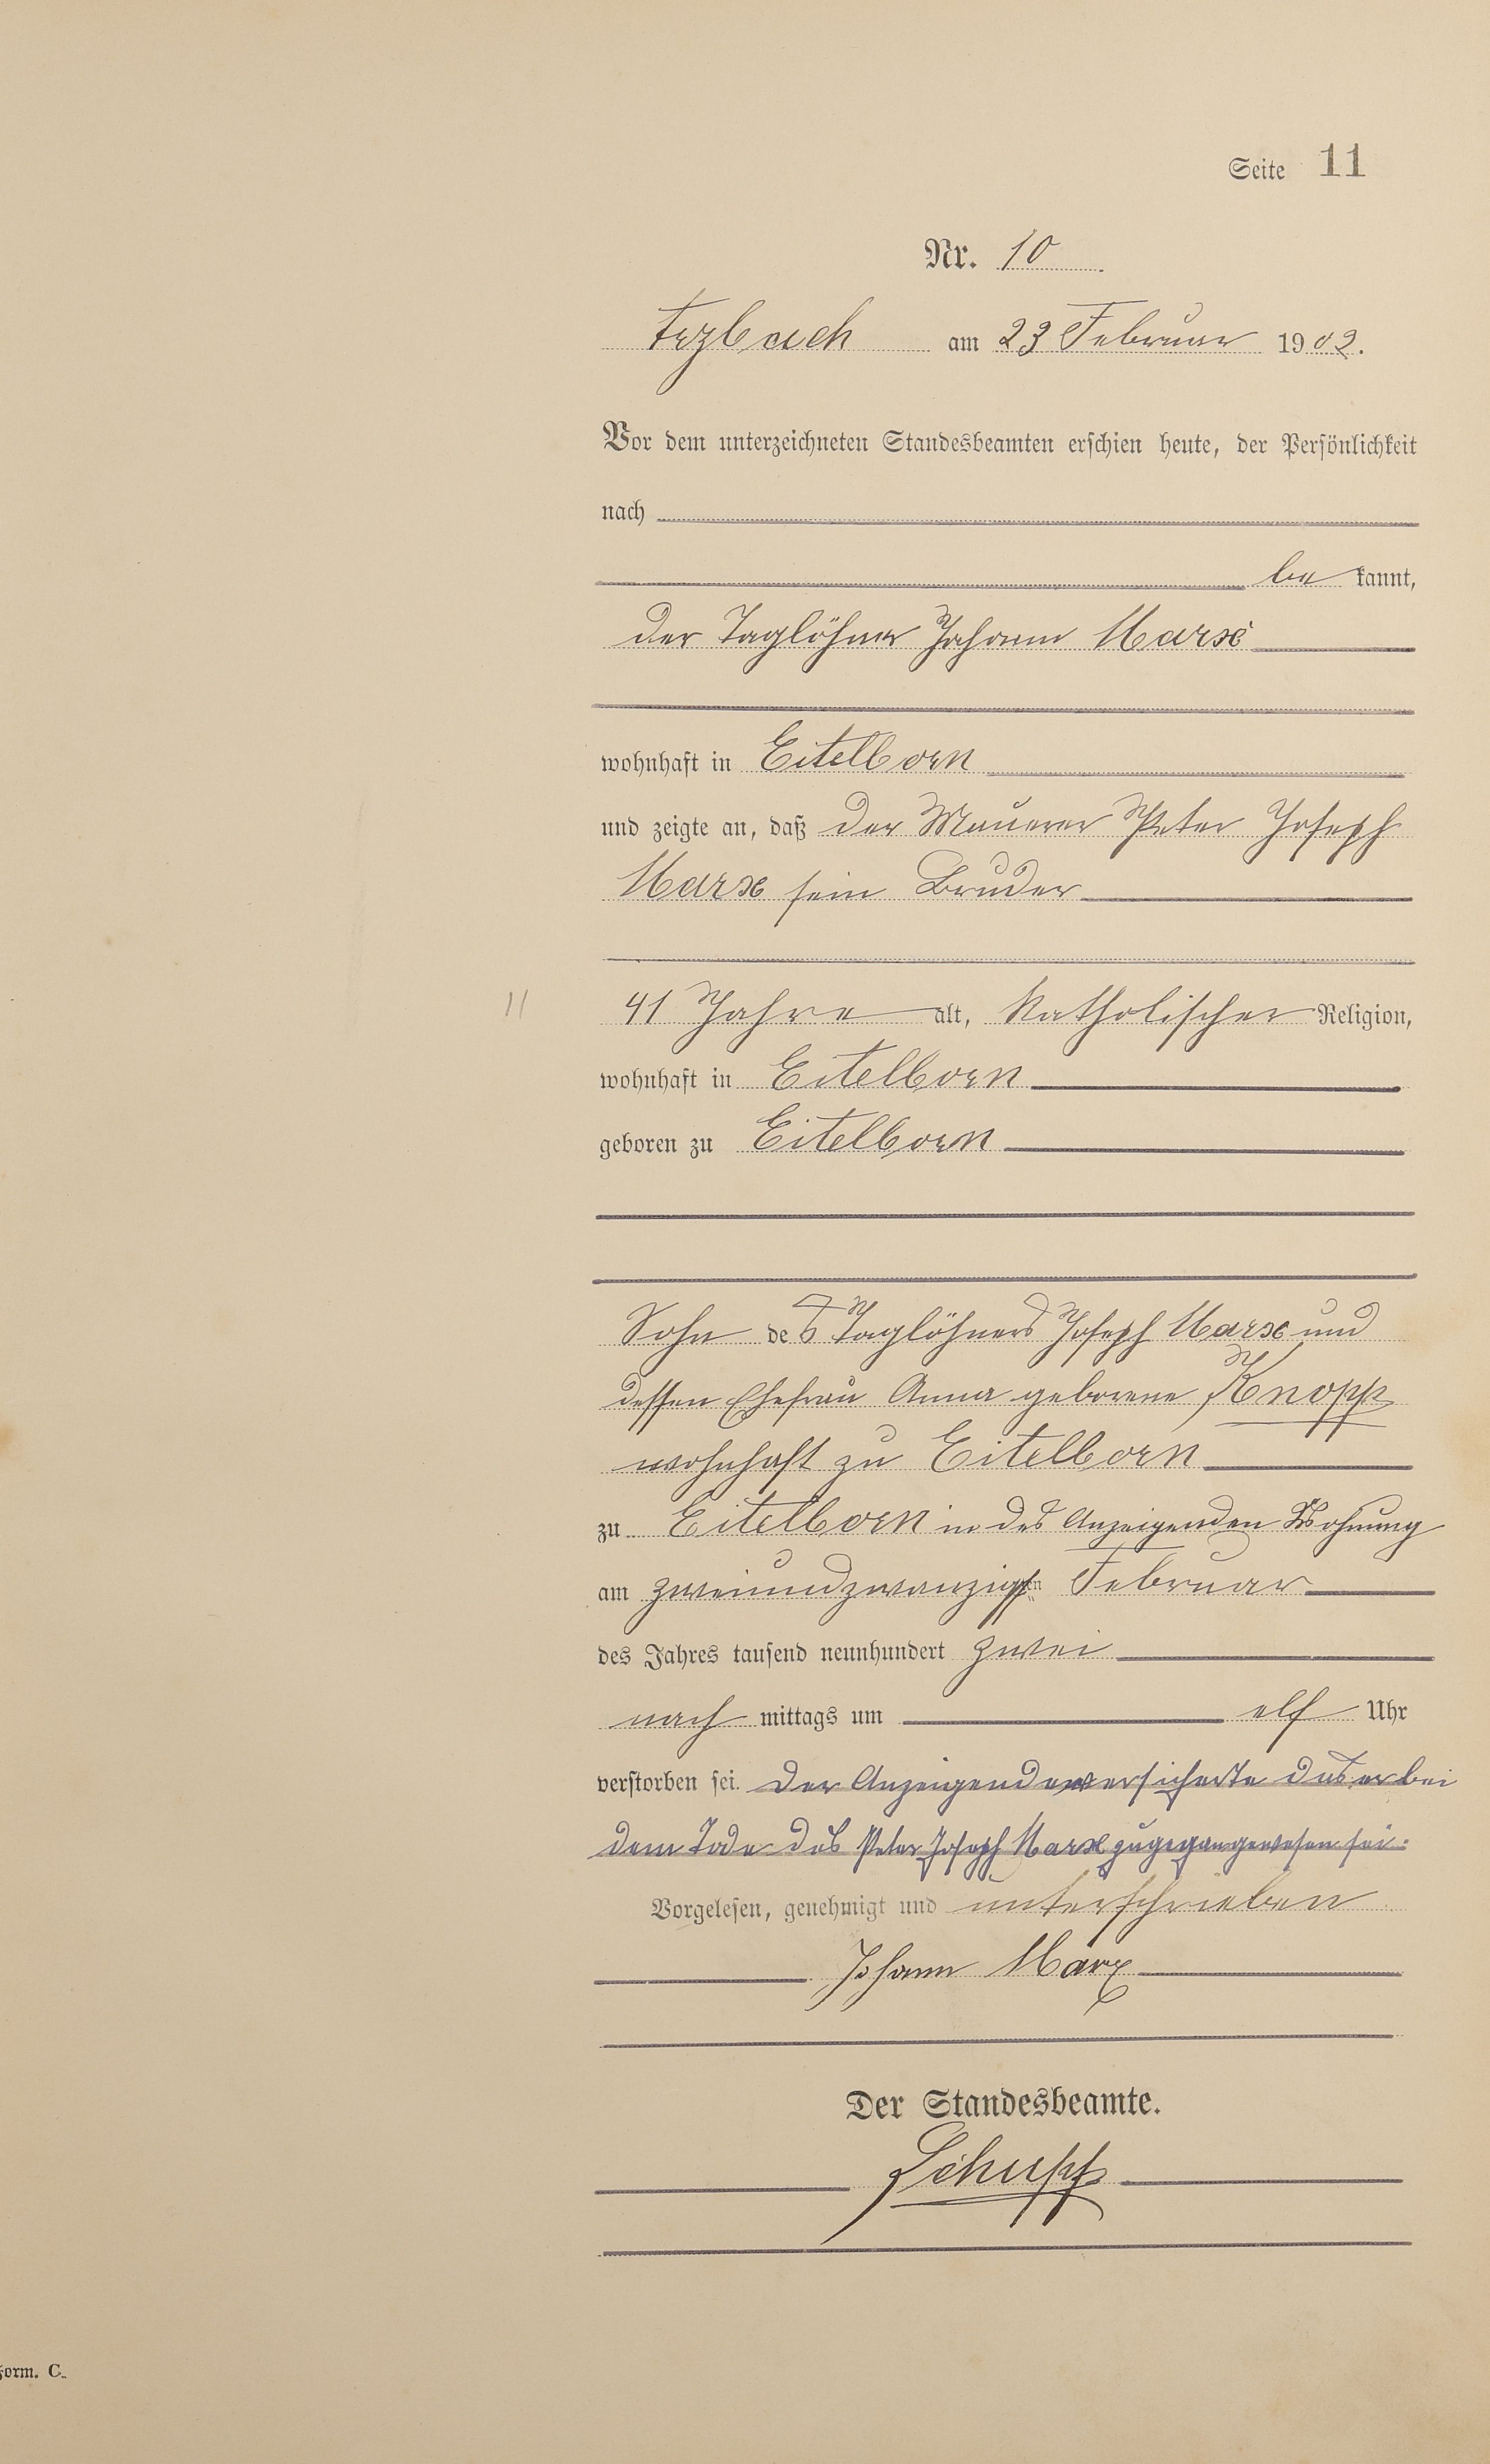 Seite 11
Nr. 10
Arzbach am 23 Februar 1902.
Vor dem unterzeichneten Standesbeamten erschien heute, der Persönlichkeit
nach
be kannt,
der Taglöhner Johann Marx
wohnhaft in Eitelborn
und zeigte an, daß der Maurer Peter Joseph
Marx sein Bruder
11 41 Jahre alt, katholischer Religion,
wohnhaft in Eitelborn
geboren zu Eitelborn
Sohn des Taglöhners Joseph Marx und
dessen Ehefrau Anna geborene Knopp
wohnhaft zu Eitelborn
zu Eitelborn in des Anzeigenden Wohnung
am zweiundzwanzigsten Februar
des Jahres tausend neunhundert zwei
nach mittags um elf Uhr
verstorben sei. Der Anzeigende versicherte das er bei
dem Tode des Peter Joseph Marx zugegangewesen sei.
Vorgelesen, genehmigt und unterschrieben
Johann Marx
Der Standesbeamte.
Schupp
Form. C.